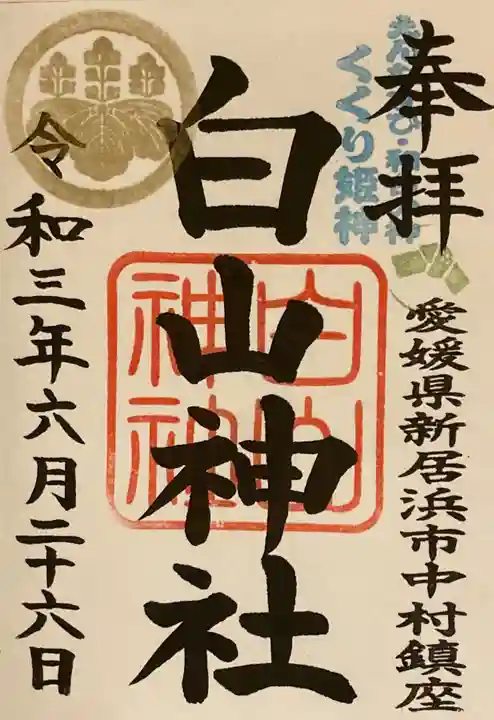 奉拝
愛媛県新居浜市中村鎮座
くくり姫神
白山神社
白山
神社
令和三年六月二十六日